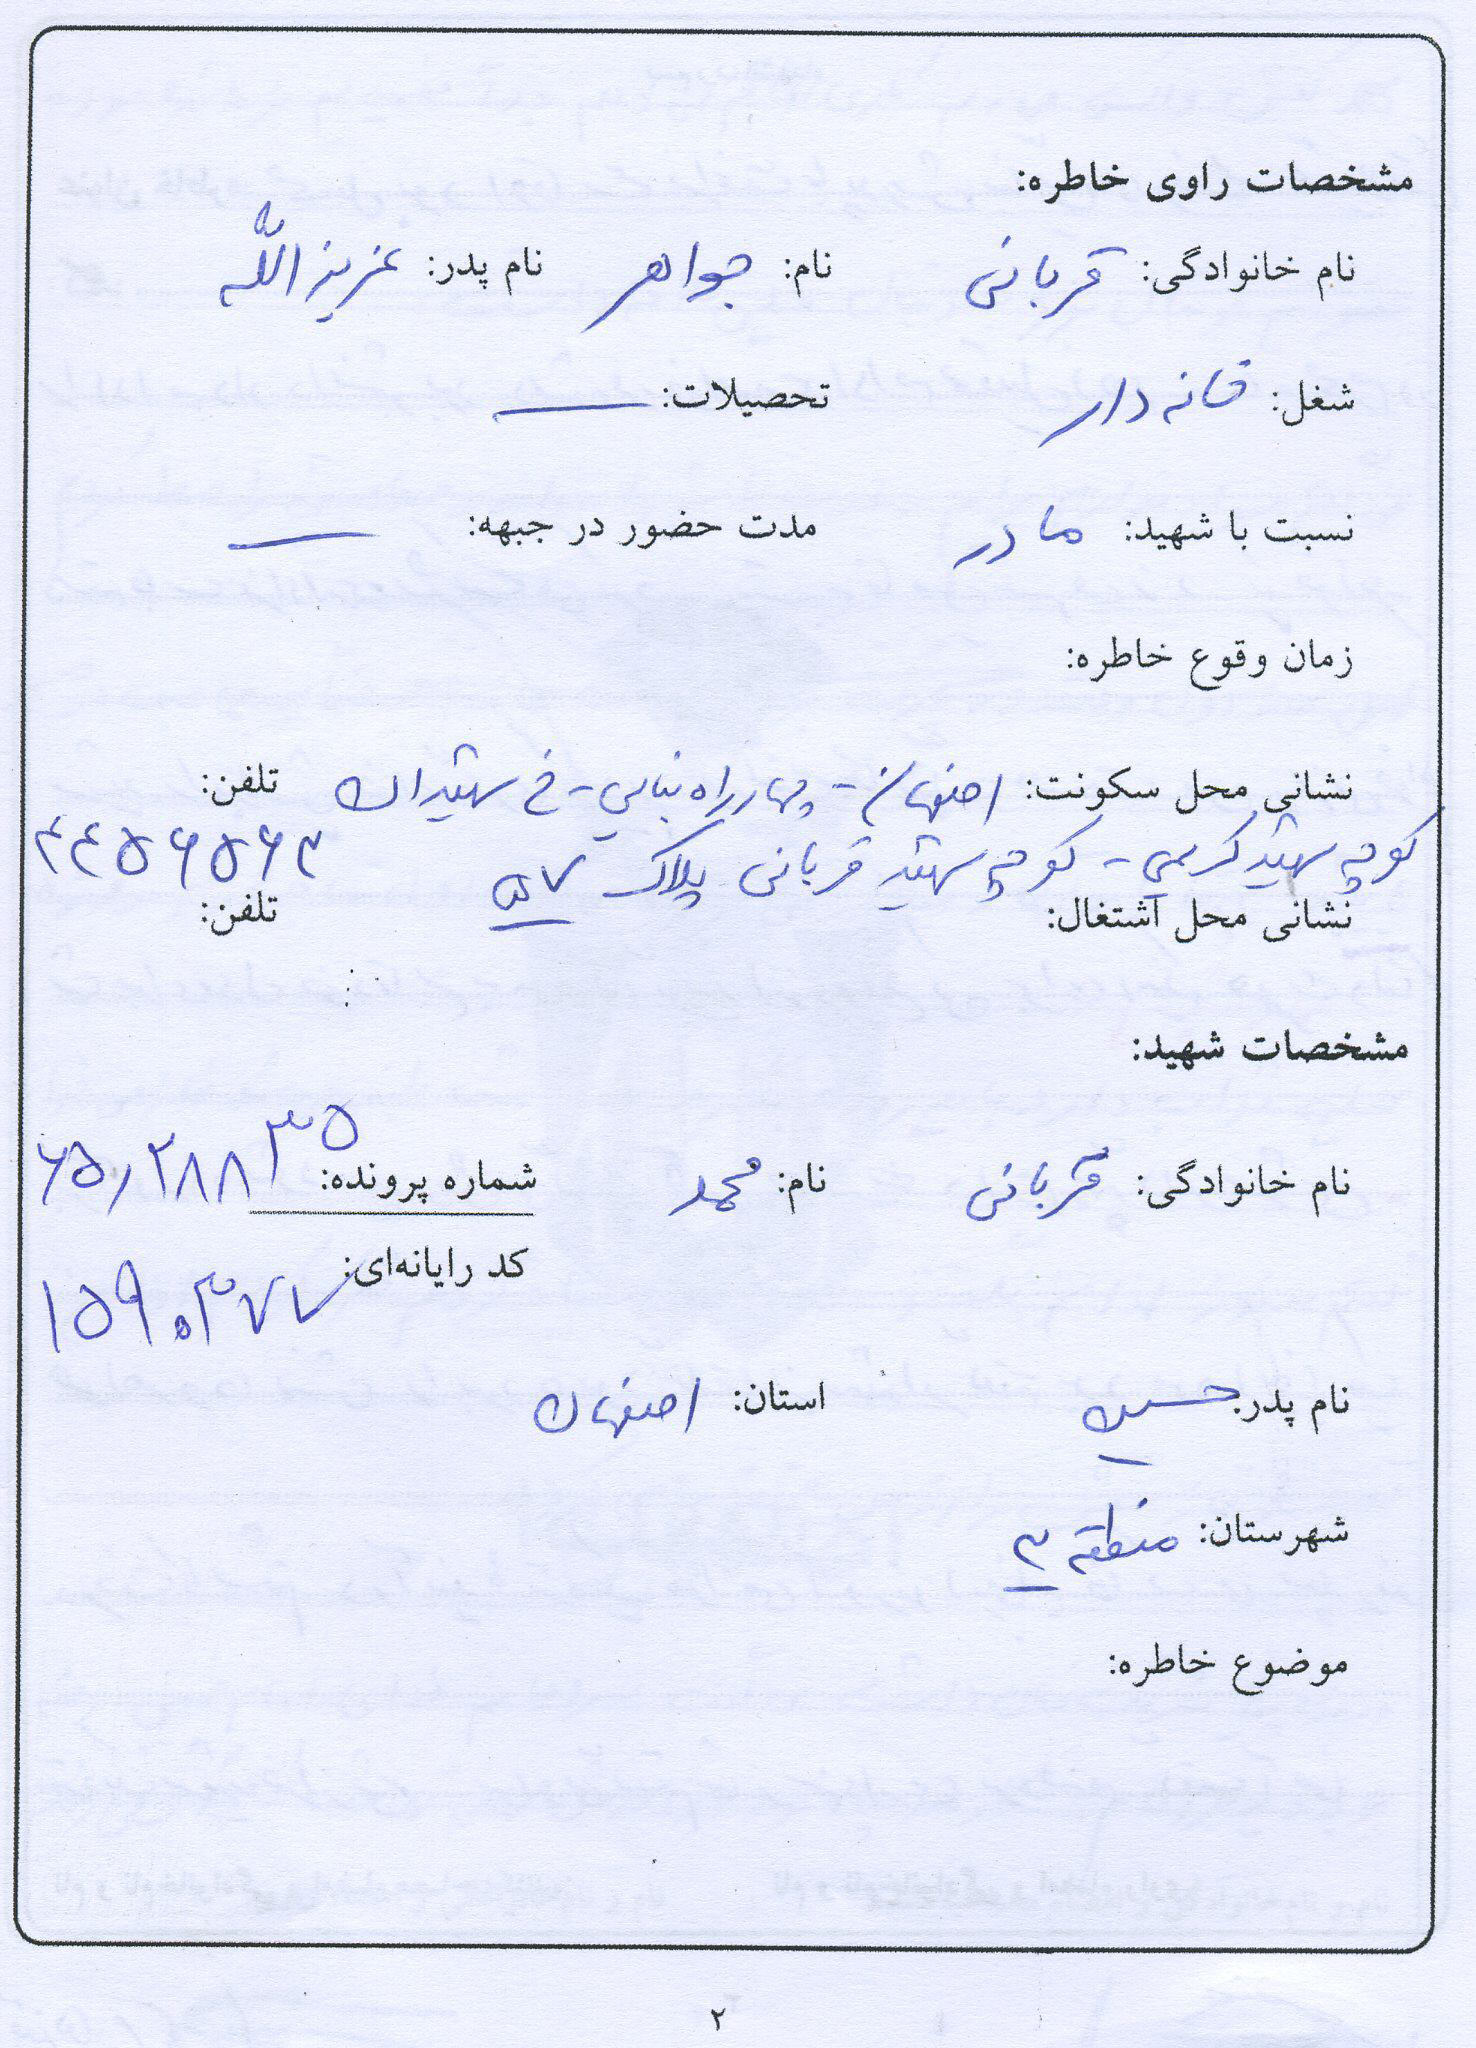 مشخصات راوی خاطره:
نام خانوادگی: قربانی نام: جواهر نام پدر: عزیزالله
شغل: خانه دار تحصیلات: ـــ
نسبت با شهید: مادر مدت حضور در جبهه: ـــ
زمان وقوع خاطره:
نشانی محل سکونت: اصفهان - چهارراه نبایی - خ شهیدان تلفن:
کوچه شهید کریمی - کوچه شهید قربانی پلاک ۵۷ ۴۴۵۶۵۶۳
نشانی محل اشتغال: تلفن:
مشخصات شهید:
نام خانوادگی: قربانی نام: محمد شماره پرونده: ۶۵/۲۸۸۳۵
کد رایانه‌ای: ۱۵۹۰۳۷۷
نام پدر: حسین استان: اصفهان
شهرستان: منطقه ۳
موضوع خاطره:
۲